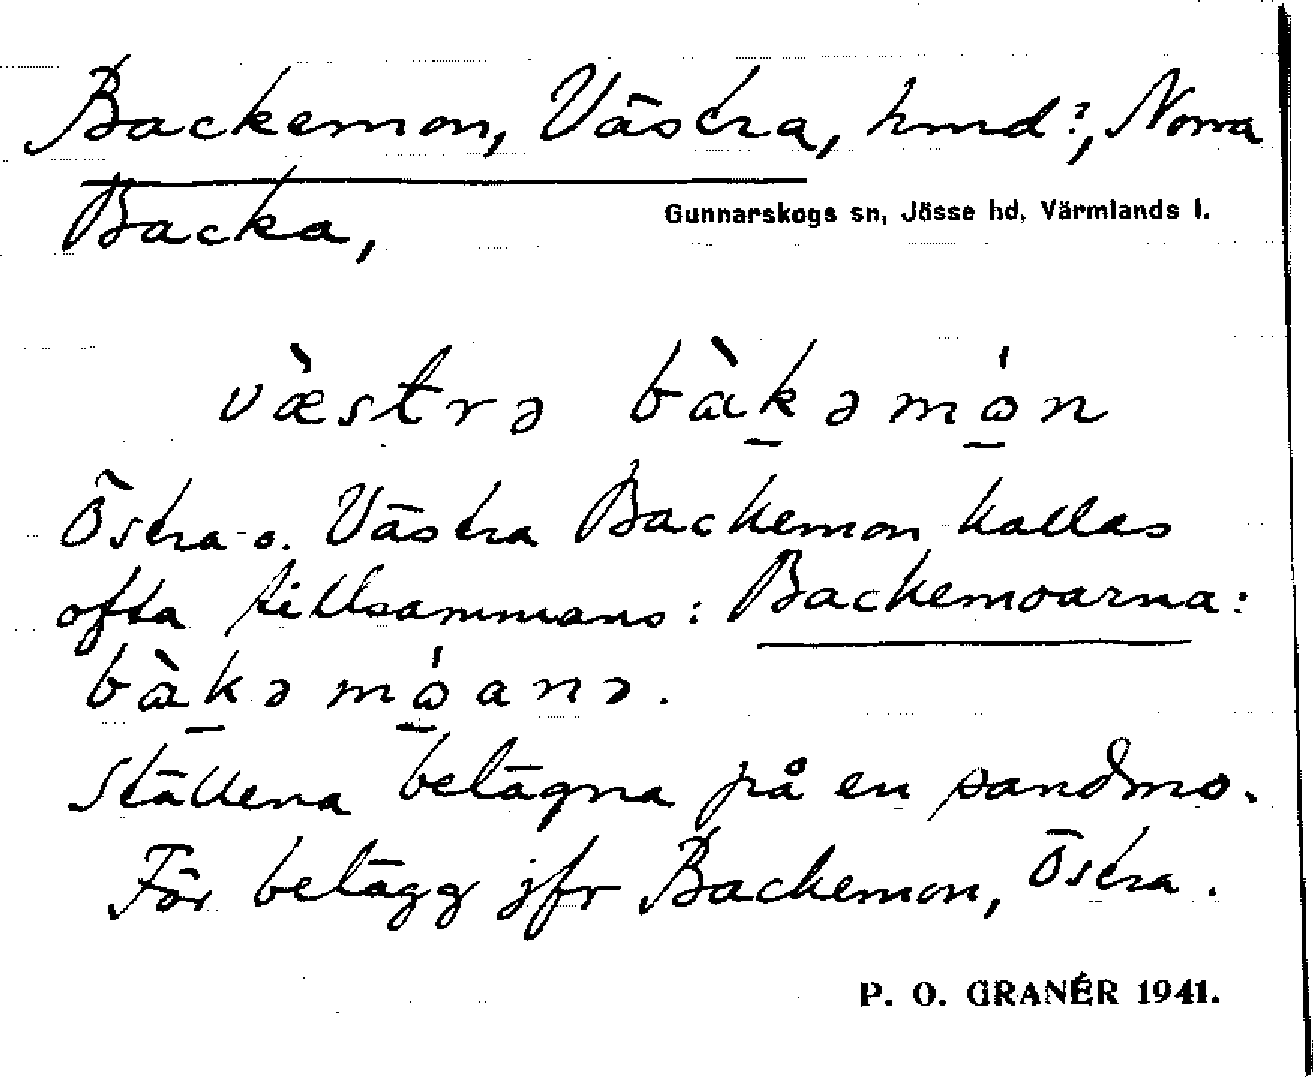 Backemon, Västra, hmd?, Norra
Backa,
Gunnarskogs sn, Jösse hd, Värmlands l.
væ̀strə bàkəmón
Östra o. Västra Backemon kallas
ofta tillsammans: Backemoarna:
bàkəmóanə.
Ställena belägna på en sandmo.
För belägg jfr Backemon, Östra.
P. O. GRANÉR 1941.